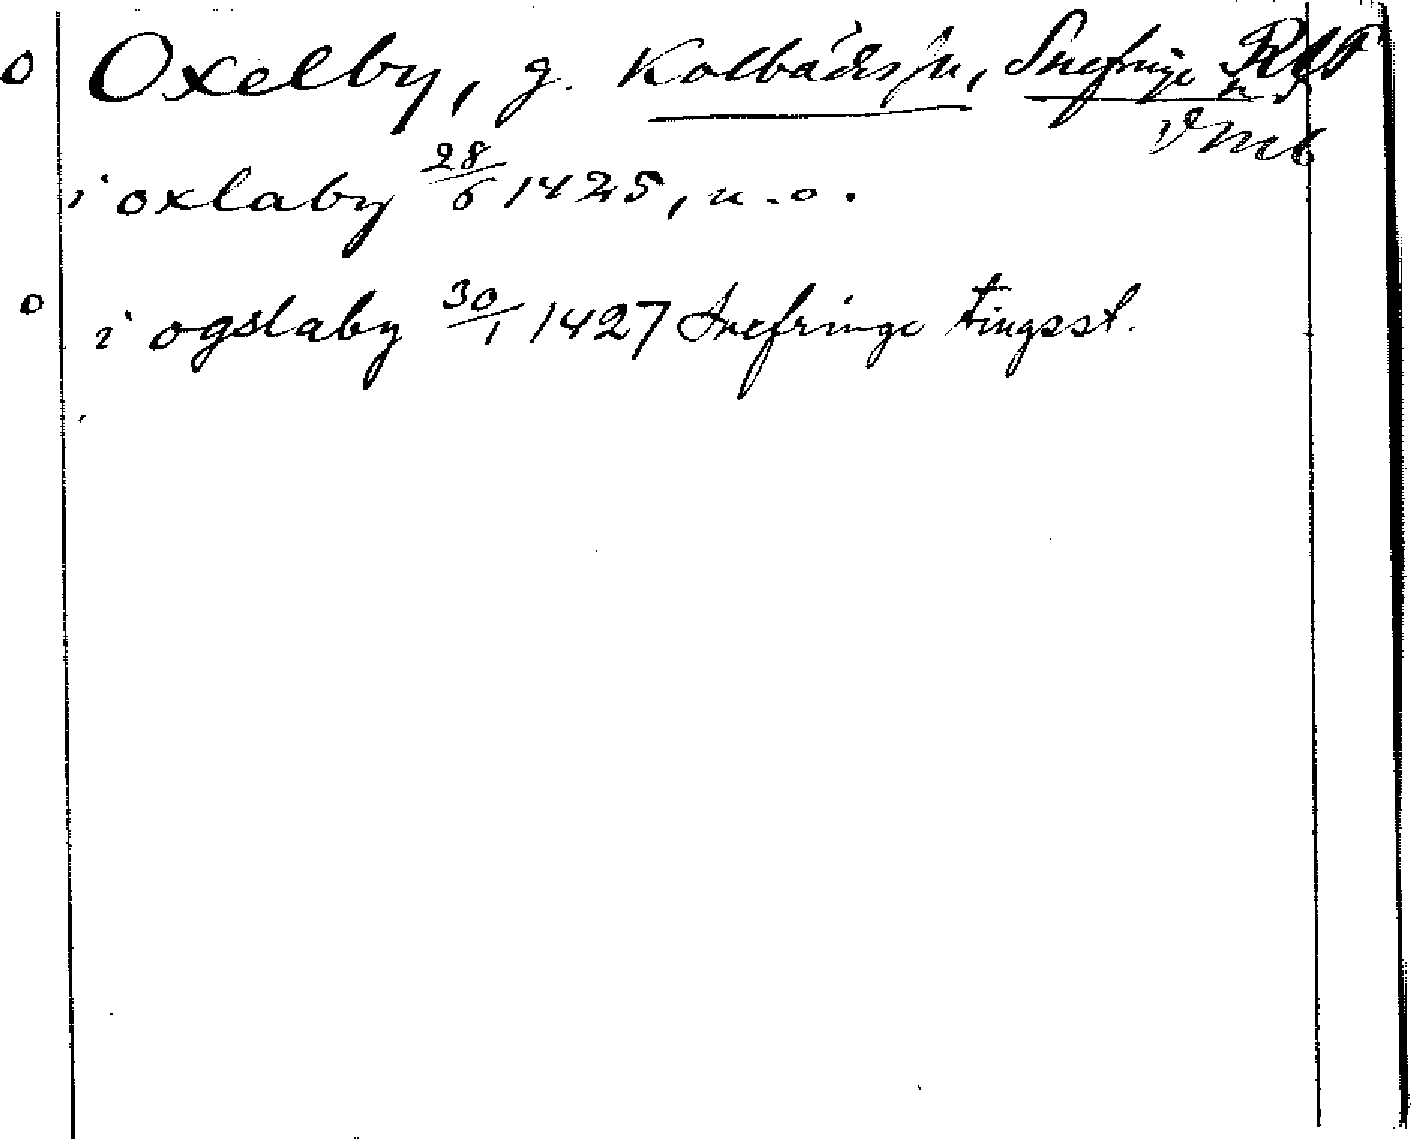 o Oxelby, g. Kolbäcks sn, Snefringe hd
Vml
i oxlaby 28/6 1425, u. o.
o i ogslaby 30/1 1427 Snefringe tingsst.